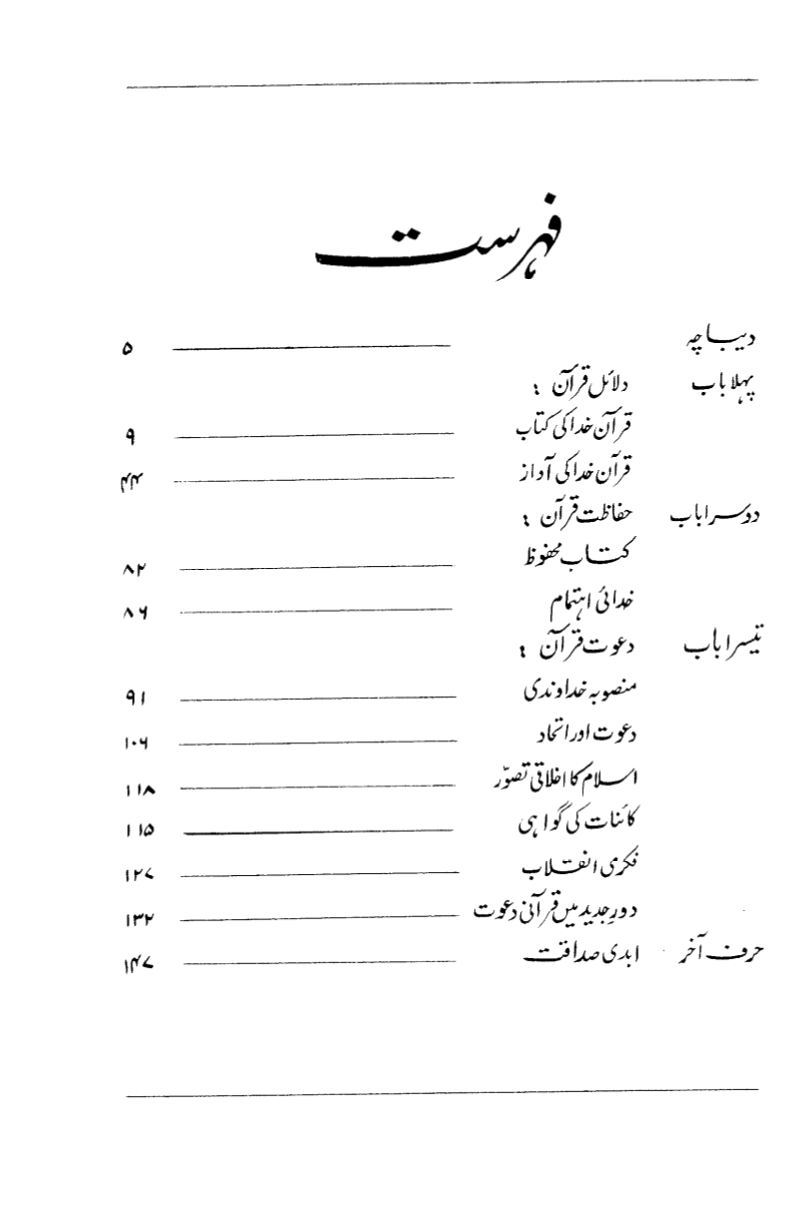 فہرست
دیباچہ ۵
پہلا باب دلائل قرآن :
قرآن خدا کی کتاب ۹
قرآن خدا کی آواز ۴۴
دوسرا باب حفاظت قرآن :
کتاب محفوظ ۸۲
خدائی اہتمام ۸۶
تیسرا باب دعوت قرآن :
منصوبہ خداوندی ۹۱
دعوت اور اتحاد ۱۰۶
اسلام کا اخلاقی تصوّر ۱۱۸
کائنات کی گواہی ۱۱۵
فکری انقلاب ۱۲۷
دورِ جدید میں قرآنی دعوت ۱۳۲
حرف آخر ابدی صداقت ۱۴۷